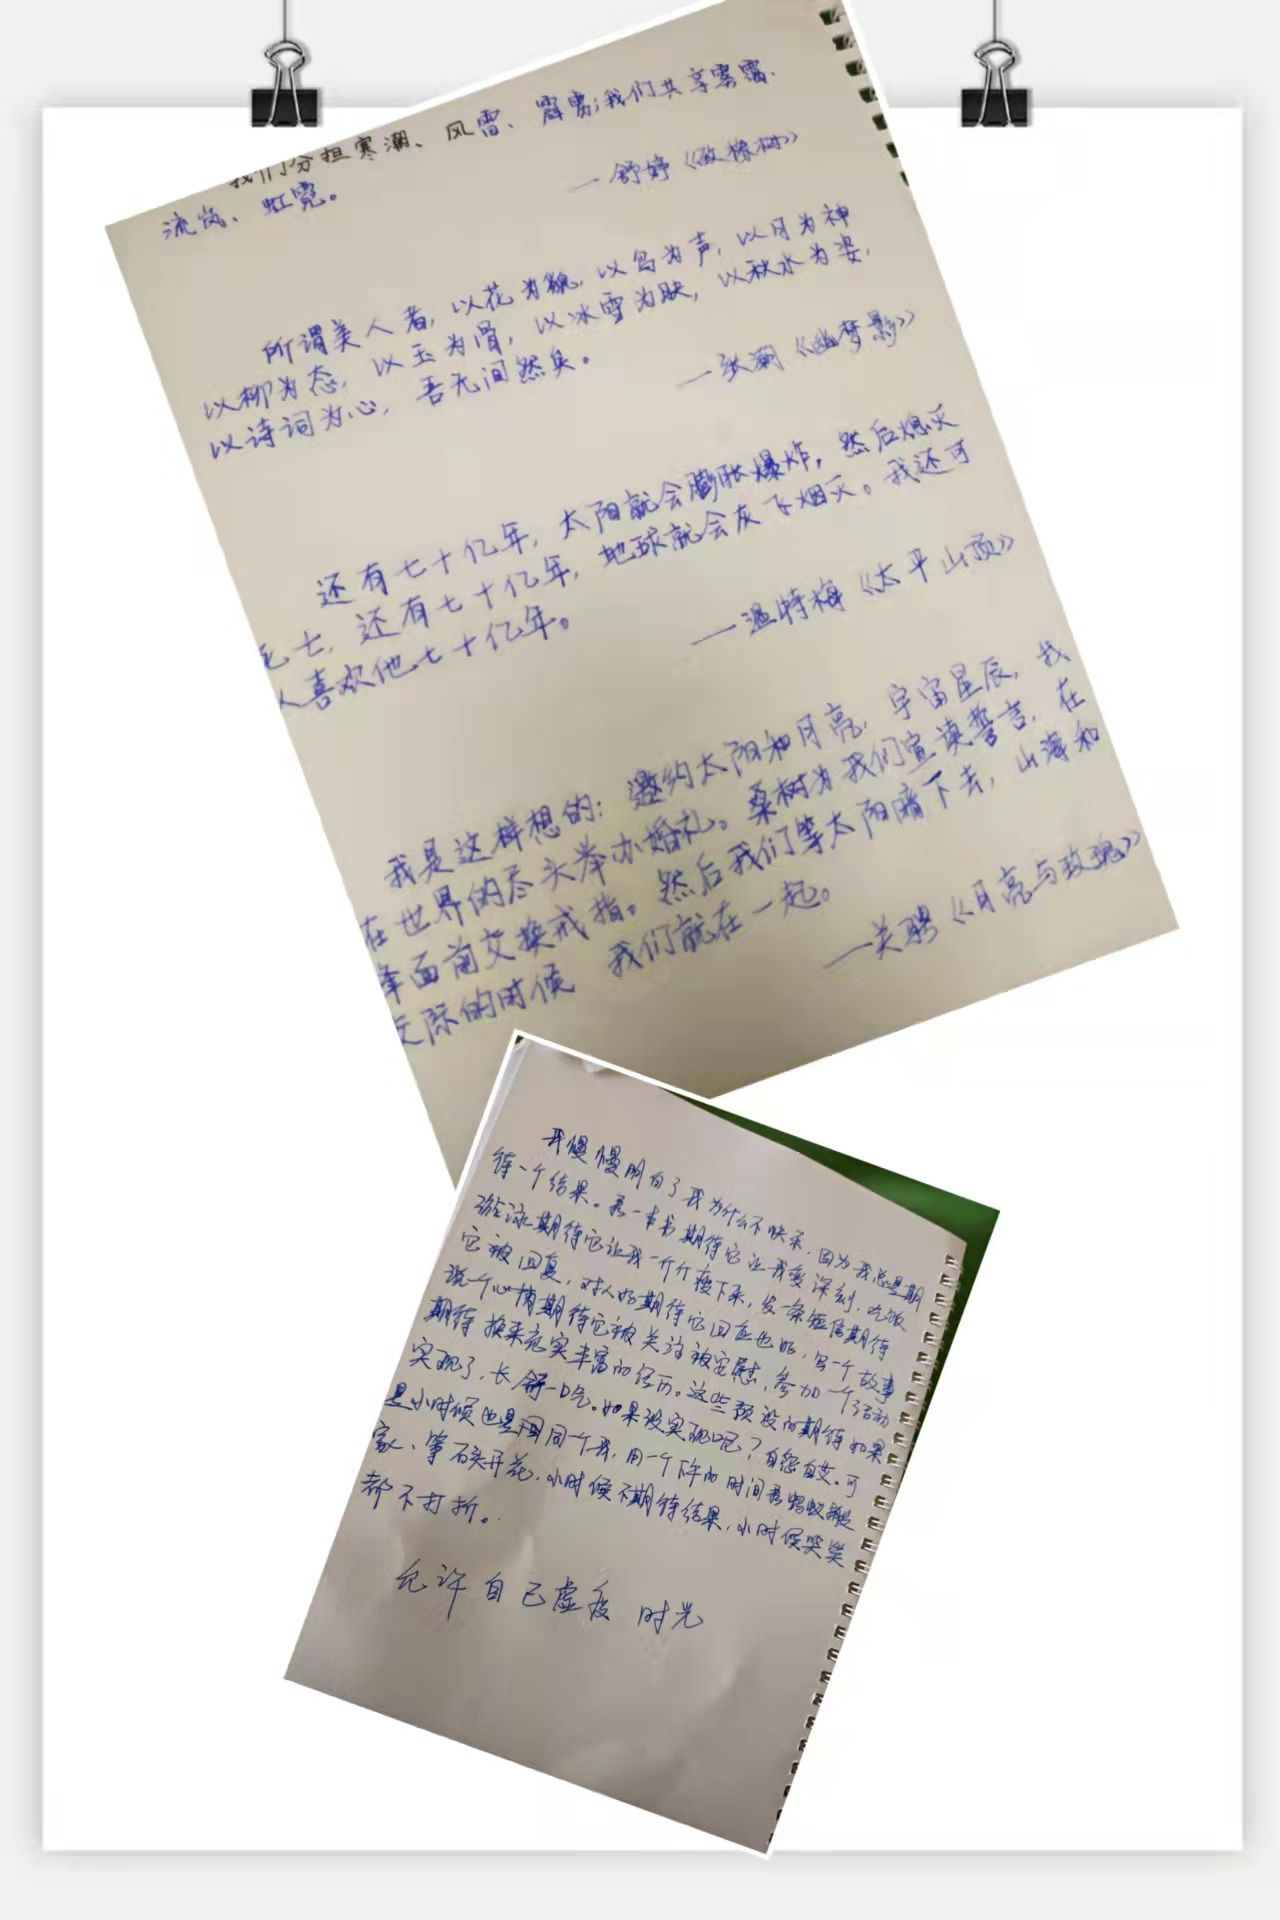 我们分担寒潮、风雷、霹雳;我们共享雾霭、
流岚、虹霓。
—舒婷《致橡树》
所谓美人者,以花为貌,以鸟为声,以月为神
以柳为态,以玉为骨,以冰雪为肤,以秋水为姿,
以诗词为心,吾无间然矣。
—张潮《幽梦影》
还有七十亿年,太阳就会膨胀爆炸,然后熄灭
死亡,还有七十亿年,地球就会灰飞烟灭。我还可
人喜欢他七十亿年。
—温特梅《太平山顶》
我是这样想的:邀约太阳和月亮,宇宙星辰,我
在世界的尽头举办婚礼。桑树为我们宣读誓言,在
面前交换戒指。然后我们等太阳暗下去,山海和
天际的时候 我们就在一起。
—关骋《月亮与玫瑰》
我慢慢明白了我为什么不快乐,因为我总是期
待一个结果。看一本书期待它让我变深刻,吃饭
游泳期待它让我一斤斤瘦下来,发一条短信期待
它被回复,对人好期待它回应也好,写一个故事
说一个心情期待它被关注被安慰,参加一个活动
期待换来充实丰富的经历。这些预设的期待如果
实现了,长舒一口气。如果没实现呢?自怨自艾。可
是小时候也是同一个我,用一个下午的时间看蚂蚁搬
家、等石头开花,小时候不期待结果,小时候哭笑
都不打折。
允许自己虚度时光